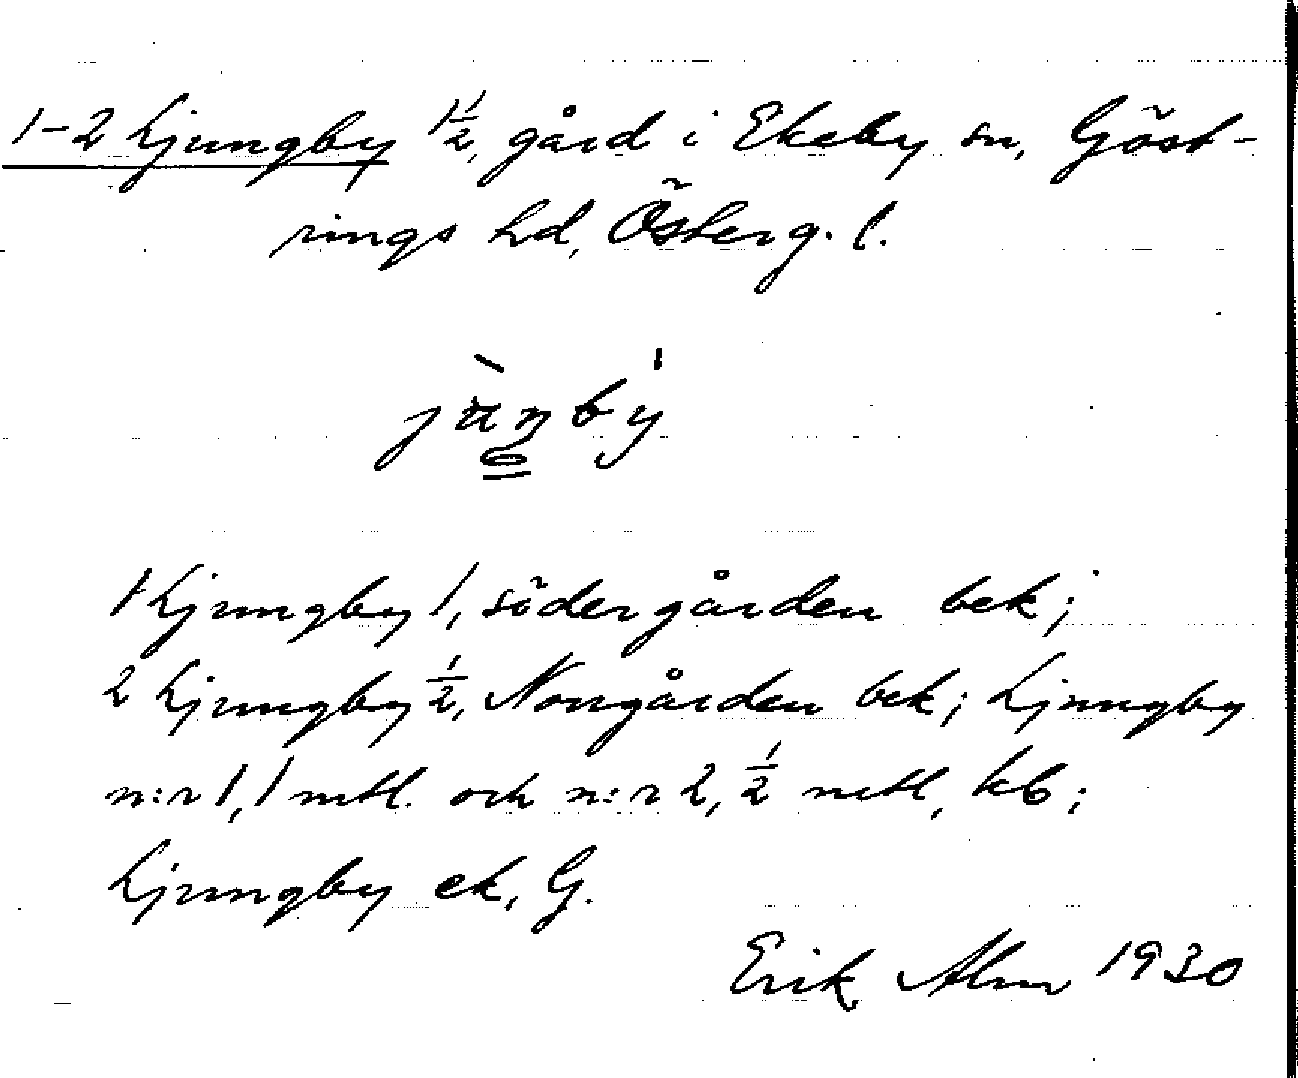 1-2 Ljungby 1 1/2, gård i Ekeby sn, Göst-
rings hd, Österg. l.
1 Ljungby 1, södergården bek;
2 Ljungby 1/2, Norrgården bek; Ljungby
n:r 1, 1 mtl. och n:r 2, 1/2 mtl, kb;
Ljungby ek, G.
Erik Alm 1930